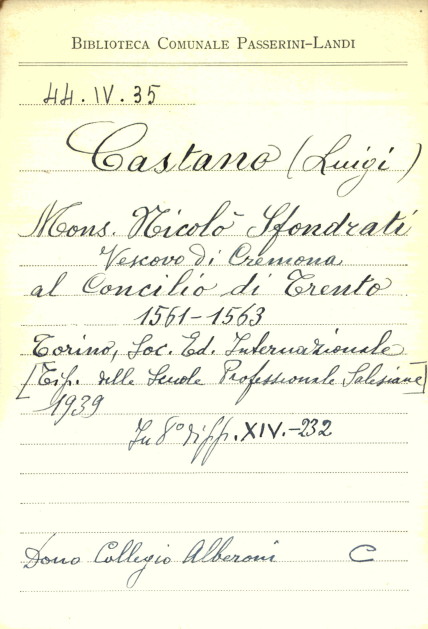 BIBLIOTECA COMUNALE PASSERINI-LANDI
44.IV.35
Castano (Luigi)
Mons. Nicolò Sfondrati
Vescovo di Cremona
al Concilio di Trento
1561-1563
Torino, Soc. Ed. Internazionale
[Tip. delle Scuole Professionale Salesiane]
1939
In 8° di pp. XIV.-232
Dono Collegio Alberoni C